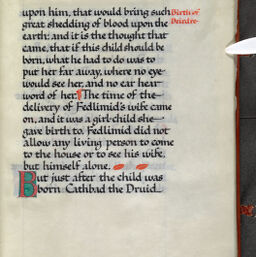 upon him, that would bring such
Birth of
Deirdre
great shedding of blood upon the
earth; and it is the thought that
came, that if this child should be
born, what he had to do was to
put her far away, where no eye
would see her, and no ear hear
word of her. ¶The time of the
delivery of Fedlimid's wife came
on, and it was a girl-child she
gave birth to. Fedlimid did not
allow any living person to come
to the house or to see his wife,
but himself alone.
But just after the child was
born Cathbad the Druid